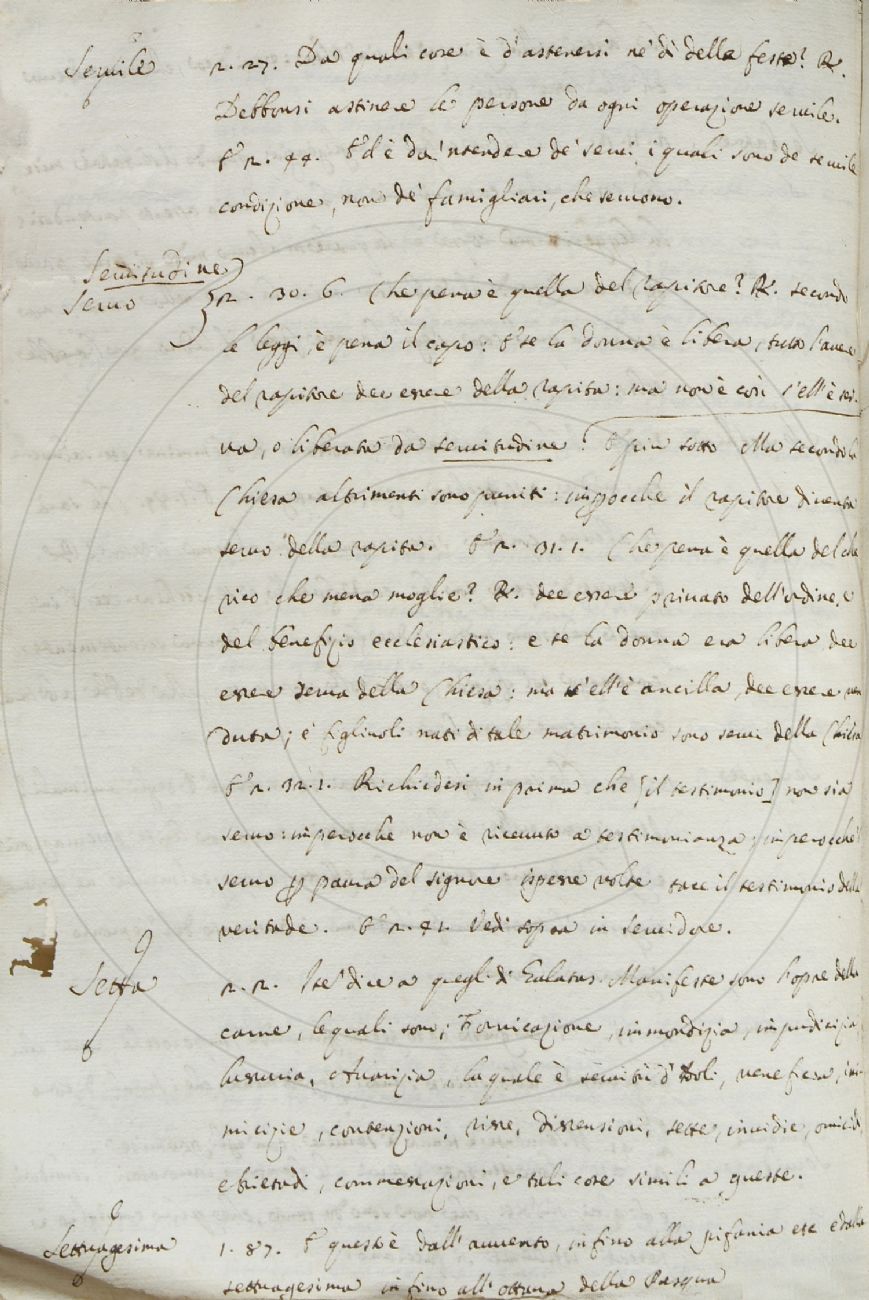 Servile
2. 27. Da quali cose è d'astenersi ne' dì delle feste? R.
Debbonsi astinere le persone da ogni operazione servile.
E 2. 44. E' d'è da 'ntendere de' servi, i quali sono de servile
condizione, non de' famigliari, che servono.
Servitudine
Servo
2. 30. 6. Che pena è quella del rapitore? R. secondo
le leggi, è pena il capo: E se la donna è libera, tutto l'avere
del rapitore dee essere della rapita: ma non è così s'ell'è ser-
va, o liberata da servitudine. E più sotto Ma secondo la
Chiesa altrimenti sono puniti: imperocche il rapitore diventa
servo della rapita. E 2. 31. 1. Che pena è quella del che
rico che mena moglie? R. dee essere privato dell'ordine, e
del benefizio ecclesiastico: e se la donna era libera dee
essere serva della Chiesa: ma s'ell'è ancilla, dee essere ven
duta; e figliuoli nati di tale matrimonio sono servi della Chiesa
E 2. 32. 1. Richiedesi in prima che [il testimonio] non sia
servo: imperocche non è ricevuto a testimonianza: imperocche'
servo per paura del signore ispesse volte tace il testimonio della
veritade. E 2. 41. Vedi sopra in Servidore.
Setta
2. 2. dice a quegli di Galatas. Manifeste sono l'opre della
carne, le quali sono; Fornicazione, immondizia, impudicizia,
lussuria, Avarizia, la quale è servitù d'Idoli, ini-
micizie, contenzioni, risse, dissensioni, sette, invidie, omicidi,
ebrietadi, commessazioni, e tali cose simili a queste.
Settuagesima
1. 87. E questo è dall'avvento, infino alla pifania e dalla
settuagesima infino all'ottava della Pasqua